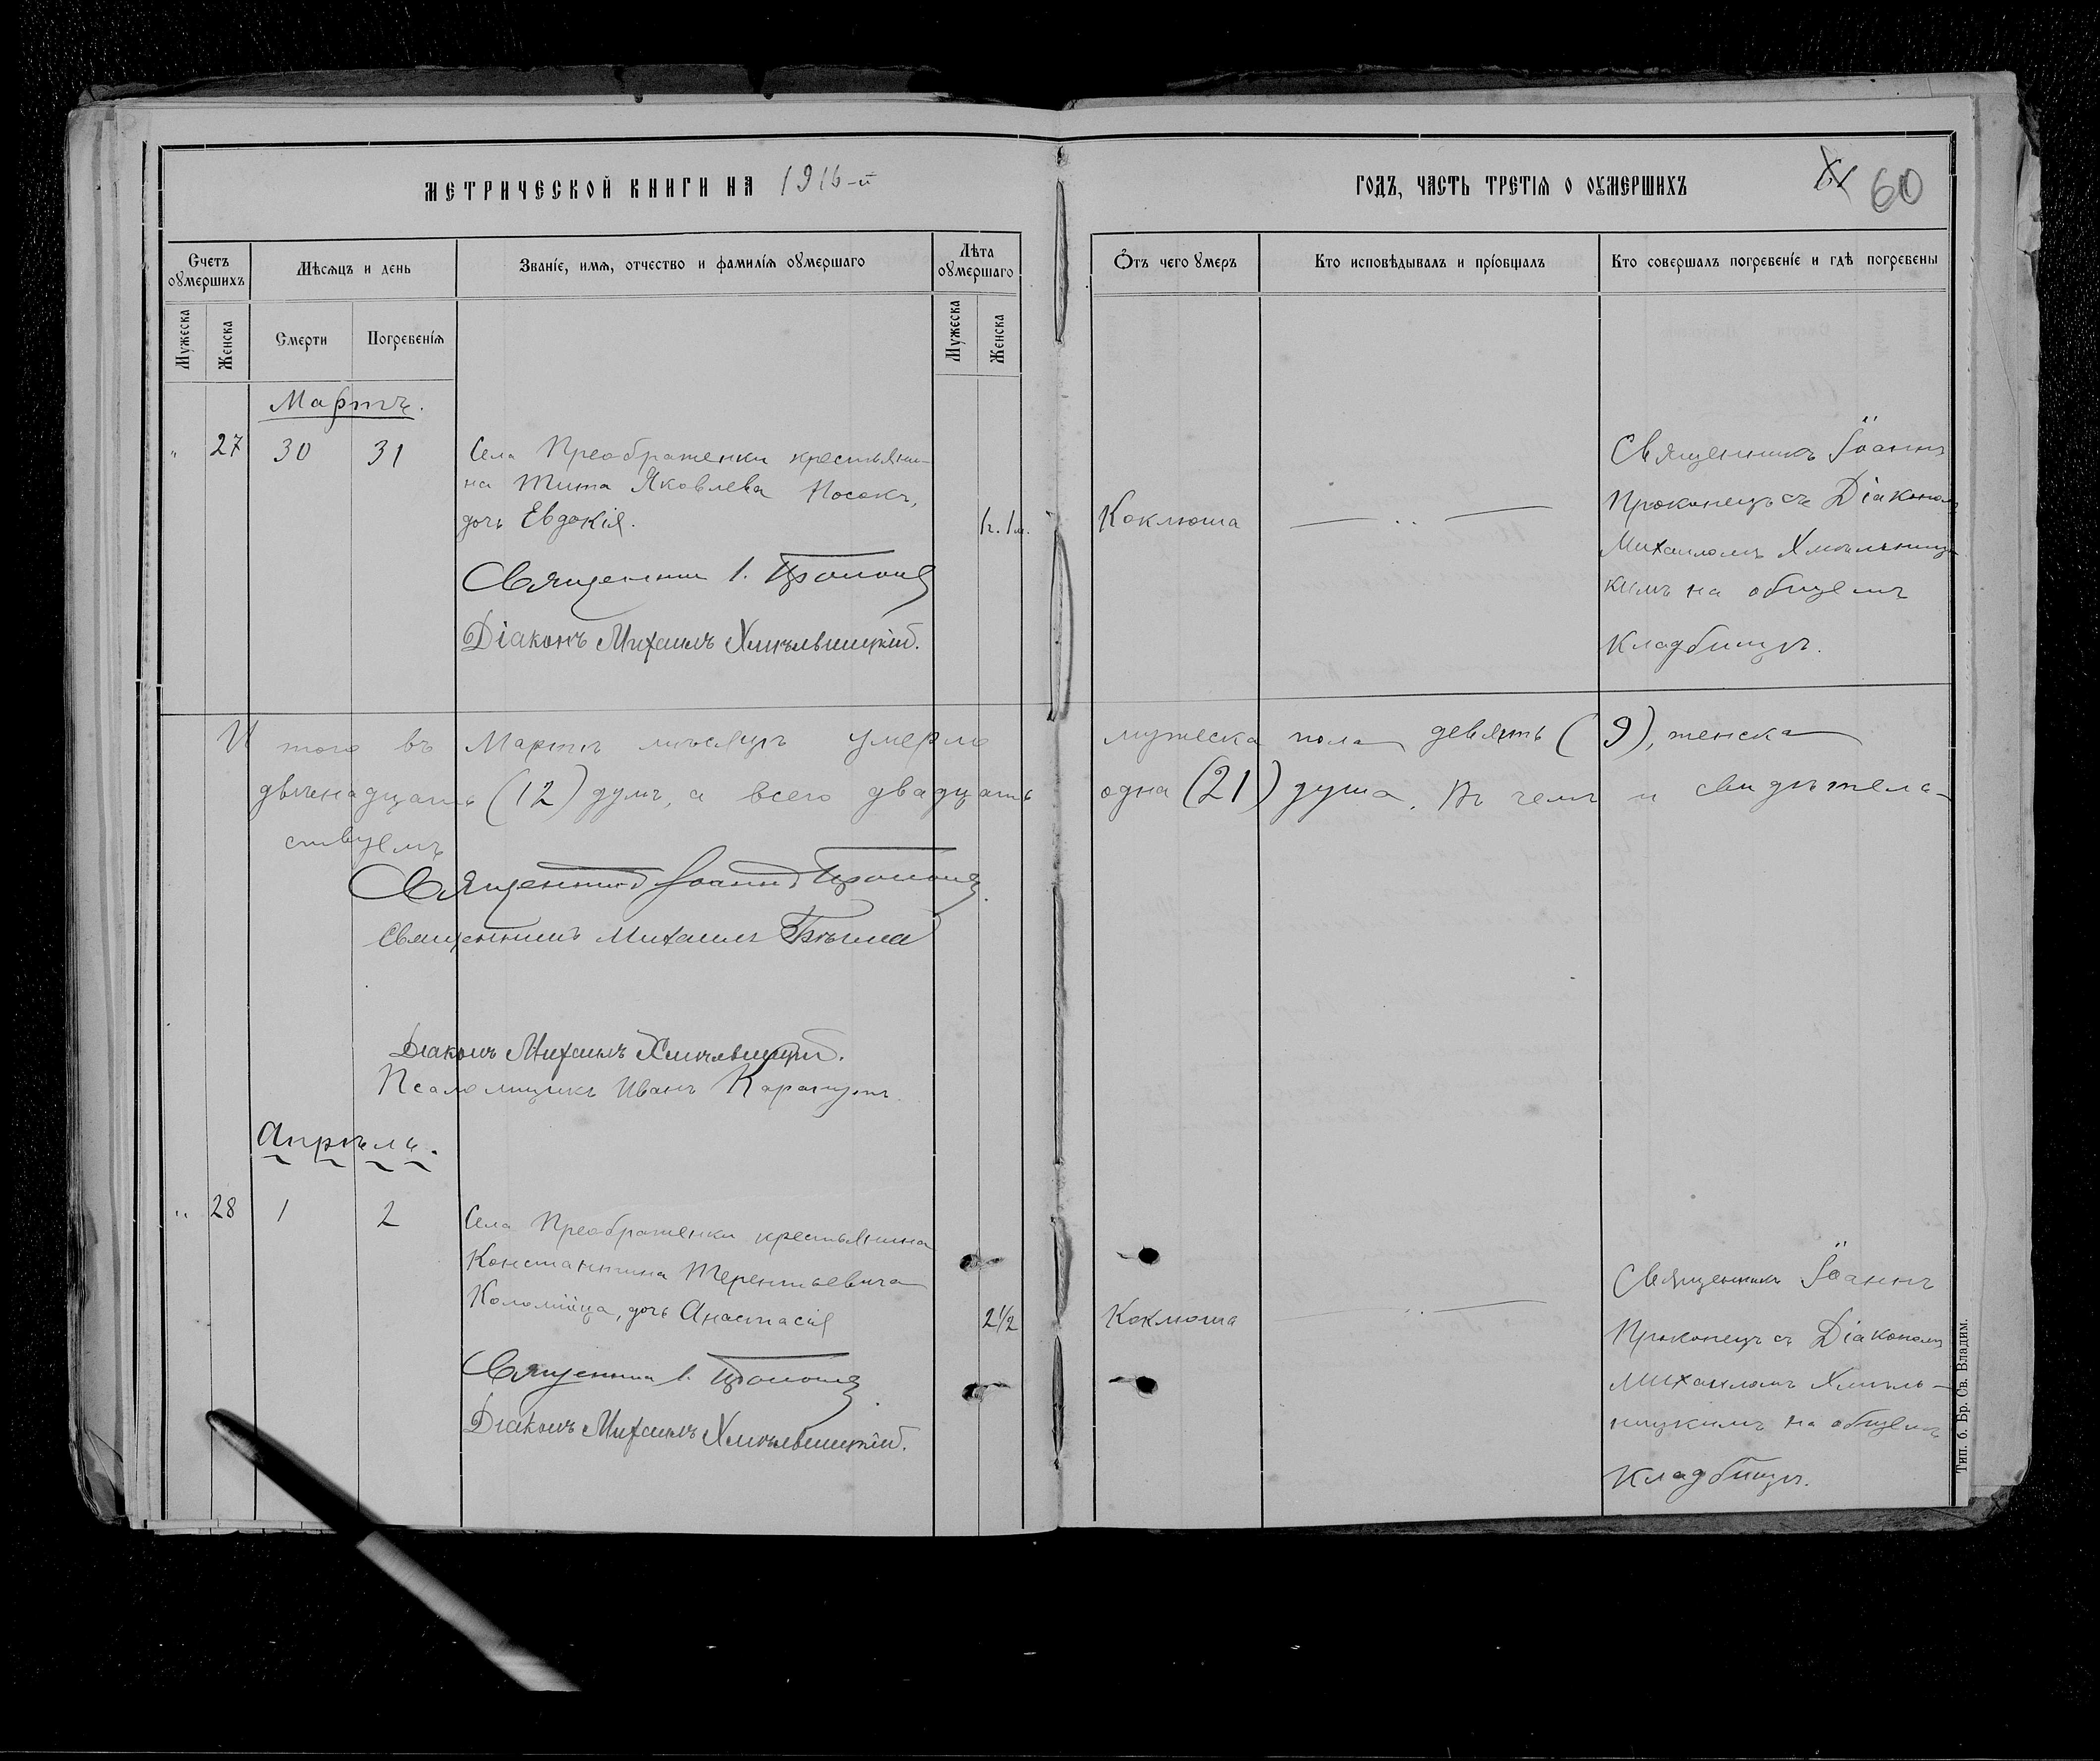 МЕТРИЧЕСКОЙ КНИГИ НА 1916-й
ГОДЪ, ЧАСТЬ ТРЕТІЯ О ОУМЕРШИХЪ 60
Счетъ оумершихъ
Мѣсяцъ и день
Званіе, имя, отчество и фамилія оумершаго
Лѣта оумершаго
Мужеска
Женска
Смерти
Погребенія
Мужеска
Женска
Отъ чего умеръ
Кто исповѣдывалъ и пріобщалъ
Кто совершалъ погребеніе и гдѣ погребены
Мартъ.
" 27 30 31
Села Преображенки крестьяни-
на Тита Яковлева Носокъ,
дочь Евдокія.
Священник І.
Діаконъ Михаилъ Хмѣльницкій.
Коклюша
Священникъ Іоаннъ
Проконецъ съ Діаконом
Михаиломъ Хмѣльниц-
кимъ на общемъ
кладбищѣ.
Итого въ Мартѣ мѣсяцѣ умерло мужеска пола девять (9), женска
двѣнадцать (12) душъ, а всего двадцать одна (21) душа. Въ чемъ и свидѣтель-
ствуемъ
Священникъ Іоаннъ
Священникъ Михаилъ
Діаконъ Михаилъ Хмѣльницкій.
Псаломщикъ Иванъ
Апрѣль.
" 28 1 2
Села Преображенки крестьянина
Константина Терентьевича
Коломійца, дочь Анастасія
2½
Священник І.
Діаконъ Михаилъ Хмѣльницкій.
Коклюша
Священникъ Іоаннъ
Проконецъ съ Діаконом
Михаиломъ Хмѣль-
ницкимъ на общемъ
кладбищѣ.
Тип. б. Бр. Св. Владим.